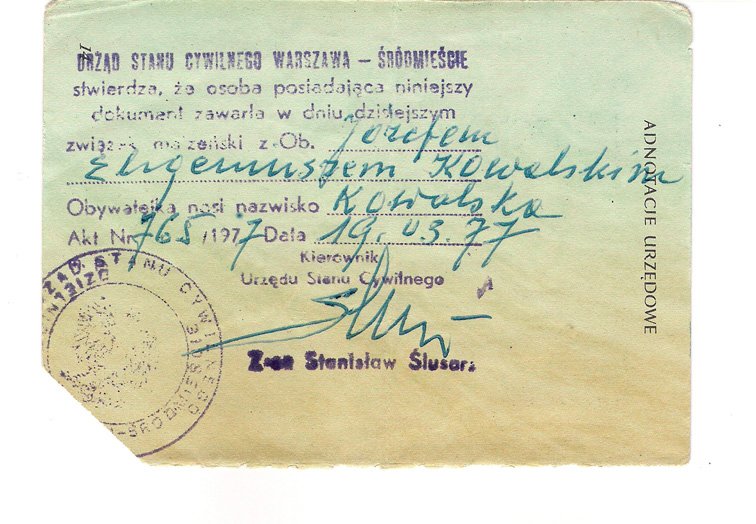 URZĄD STANU CYWILNEGO WARSZAWA – ŚRÓDMIEŚCIE
stwierdza, że osoba posiadająca niniejszy
dokument zawarła w dniu dzisiejszym
związek małżeński z Ob. Józefem
Eugeniuszem Kowalskim
Obywatelka nosi nazwisko Kowalska
Akt Nr 765/1977 Data 19.03.77
Kierownik
Urzędu Stanu Cywilnego
Z-ca Stanisław Ślusarz
ADNOTACJE URZĘDOWE
URZĄD STANU CYWILNEGO
ŚRÓDMIEŚCIE